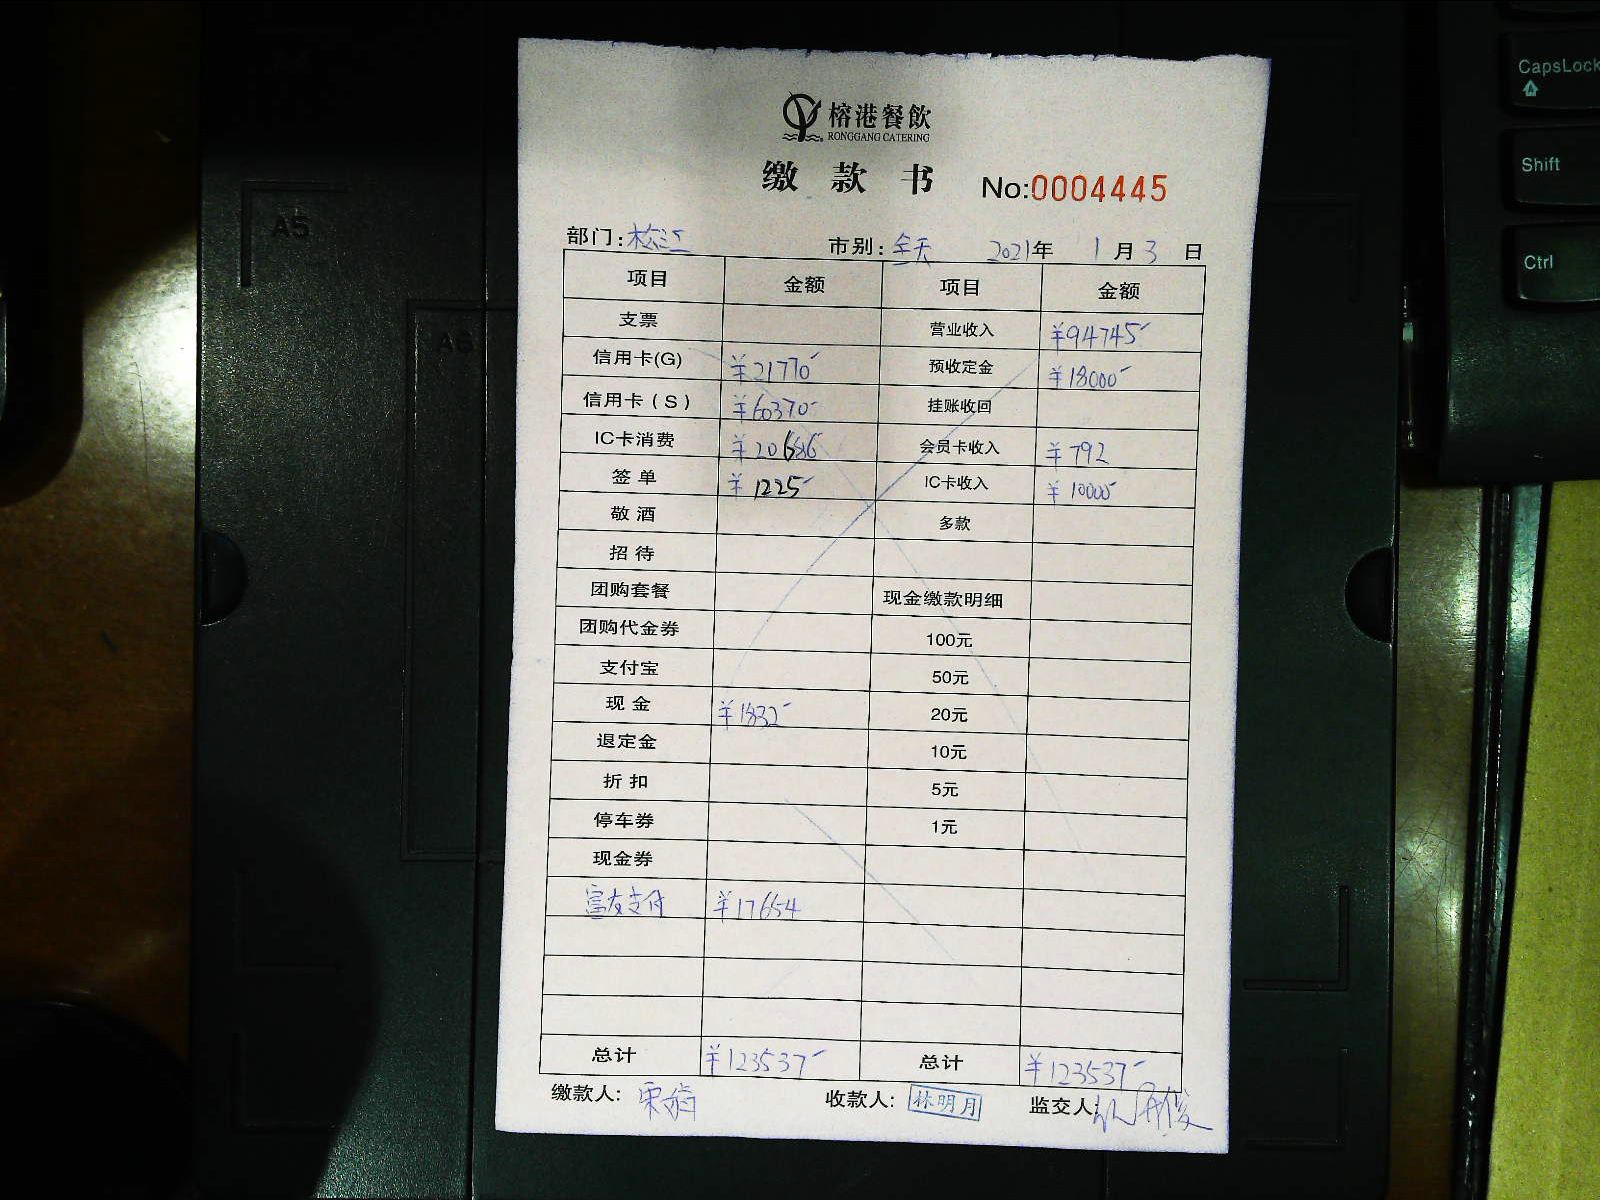 CapsLock
Shift
Ctrl
A5
A6
榕港餐飲
RONGGANG CATERING
缴款书 No:0004445
部门:松江 市别:全天 2021年1月3日
项目 金额 项目 金额
支票 营业收入 ¥94745-
信用卡(G) ¥21770- 预收定金 ¥18000-
信用卡(S) ¥60370- 挂账收回
IC卡消费 ¥20686 会员卡收入 ¥792
签单 ¥1225- IC卡收入 ¥10000-
敬酒 多款
招待
团购套餐 现金缴款明细
团购代金券 100元
支付宝 50元
现金 ¥1832- 20元
退定金 10元
折扣 5元
停车券 1元
现金券
富友支付 ¥17654
总计 ¥123537- 总计 ¥123537-
缴款人: 收款人: 林明月 监交人: